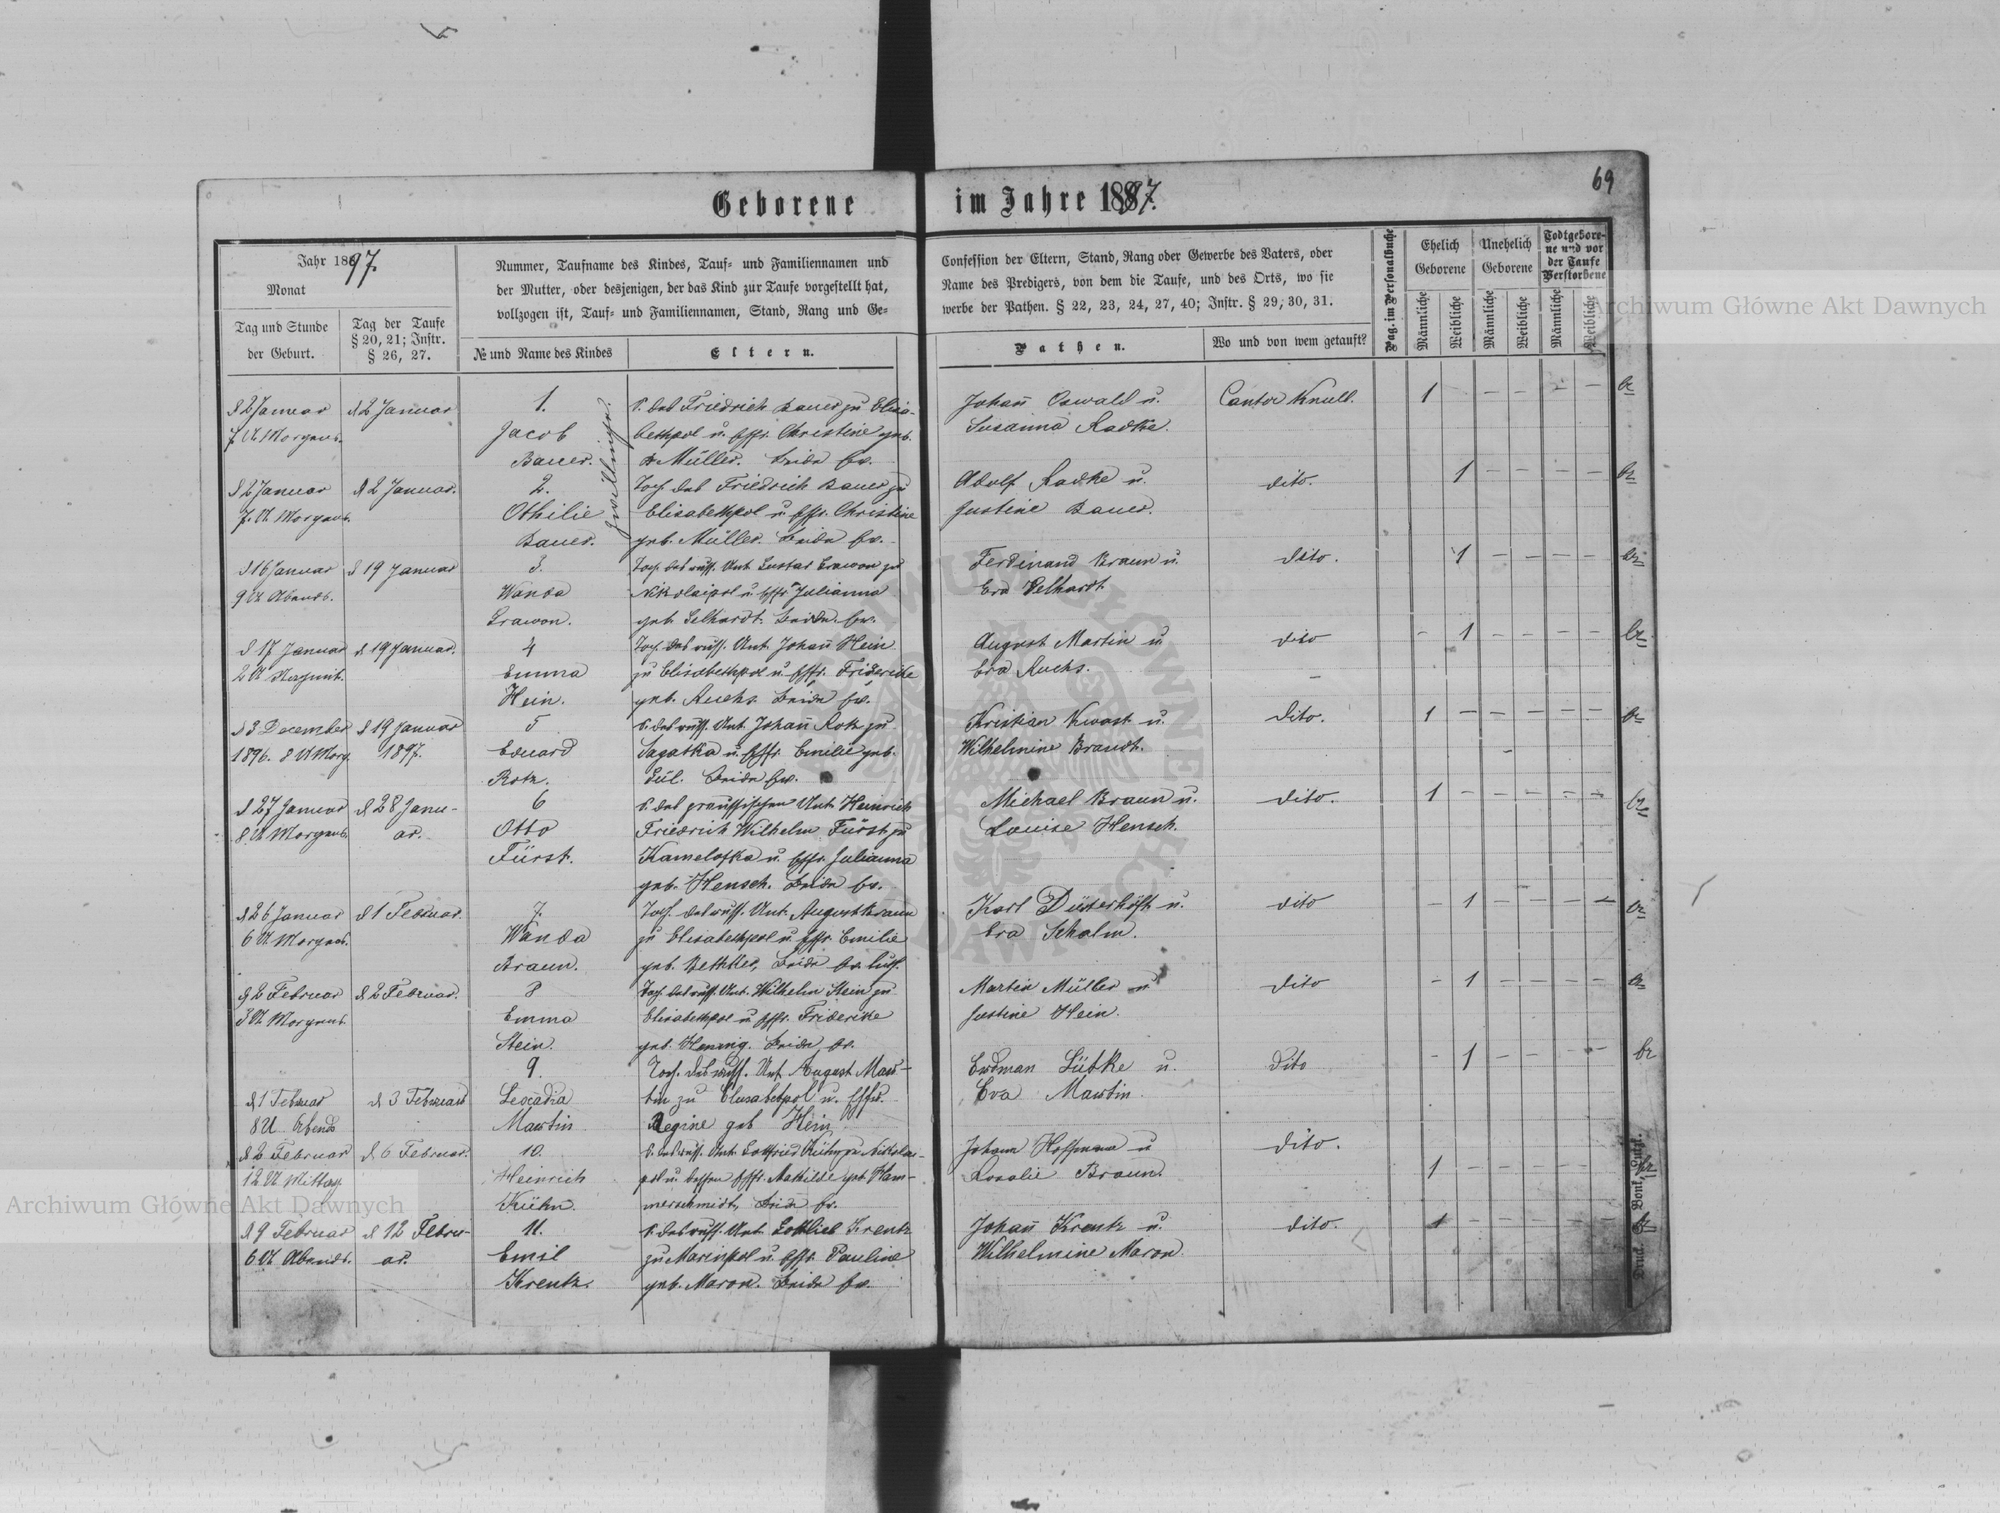 69
Geborene im Jahre 1897.
Jahr 1897.
Monat
Tag und Stunde der Geburt.
Tag der Taufe § 20, 21; Instr. § 26, 27.
Nummer, Taufname des Kindes, Tauf- und Familiennamen und
der Mutter, oder desjenigen, der das Kind zur Taufe vorgestellt hat,
vollzogen ist, Tauf- und Familiennamen, Stand, Rang und Ge-
№ und Name des Kindes
Eltern.
Confession der Eltern, Stand, Rang oder Gewerbe des Vaters, oder
Name des Predigers, von dem die Taufe, und des Orts, wo sie
werbe der Pathen. § 22, 23, 24, 27, 40; Instr. § 29, 30, 31.
Pathen.
Wo und von wem getauft?
Pag. im Personalbuche
Ehelich Geborene
Unehelich Geborene
Todtgebore-
ne und vor
der Taufe
Verstorbene
Männliche
Weibliche
Männliche
Weibliche
Männliche
Weibliche
d 2 Januar d 2 Januar 1. S. des Friedrich Bauer zu Elisa- Johan̄ Oswald u. Cantor Knull. 1
7 U Morgens. Jacob bethpol u. Ehfr. Christine geb. Susanna Radke.
Bauer. Müller. Beide ev.
Zwillinge.
d 2 Januar d 2 Januar. 2. Toch. des Friedrich Bauer zu Adolf Radke u. dito. 1
7. U. Morgens. Othilie Elisabethpol u. Ehfr. Christine Justine Bauer.
Bauer. geb. Müller. Beide ev.
d 16 Januar d 19 Januar 3. Toch. des russ. Unt. Gustav Grawon zu Ferdinand Braun u. dito. 1
9 U Abends. Wanda Nikolaipol u. Ehfr. Julianna Eva Selhardt
Grawon. geb. Selhardt. Beide ev.
d 17 Januar d 19 Januar. 4 Toch. des russ. Unt. Johan̄ Hein August Martin u dito 1
2 U Emma zu Elisabethpol u. Ehfr. Friderike Eva Ruchs.
Hein. geb. Ruchs. Beide ev.
d 3 December d 19 Januar 5 S. des russ. Unt. Johan̄ Rotz zu Kristian Kwast u. dito. 1
1896. 8 U Morg. 1897. Eduard Sagatka u. Ehfr. Emilie geb. Wilhelmine Brandt.
Rotz. Beide ev.
d 27 Januar d 28 Janu- 6 S. des preussischen Unt. Heinrich Michael Braun u. dito. 1
8 U Morgens. ar. Otto Friedrich Wilhelm Fürst zu Louise Hensch.
Fürst. Kamelofka u. Ehfr. Julianna
geb. Hensch. Beide ev.
d 26 Januar d 1 Februar. 7. Toch. des russ. Unt. August Braun Karl Düsterhöft u. dito 1
6 U Morgens. Wanda zu Elisabethpol u. Ehfr. Emilie Eva Schalm.
Braun. geb. Bethker, Beide ev. luth.
d 2 Februar d. 2 Februar. 8 Toch. des russ. Unt. Wilhelm Stein zu Martin Müller u dito 1
3 U Morgens. Emma Elisabethpol u. Ehfr. Friderike Justine Hein.
Stein. geb. Henning. Beide ev.
9. Toch. des russ. Unt August Mar- Erdman Lübke u. dito 1
d 1 Februar d 3 Februar Leocadia tin zu Elisabetpol u. Ehfr. Eva Martin
8 U Abends Martin Regine geb Hein
d 2 Februar d. 6 Februar. 10. S. des russ. Unt. Gottfried Kühn zu Nikolai- Johann Hoffmann u dito.
12 U Mittag. Heinrich pol u. dessen Ehfr. Mathilde geb. Ham- Rosalie Braun. 1
Kühn. merschmidt, Beide ev.
d 9 Februar d 12 Febru- 11. S. des russ. Unt. Gottlieb Krentz Johan̄ Krentz u. dito. 1
6 U Abends. ar. Emil zu Marinpol u. Ehfr. Pauline Wilhelmine Maron.
Krentz. geb. Maron. Beide ev.
Archiwum Główne Akt Dawnych
Archiwum Główne Akt Dawnych